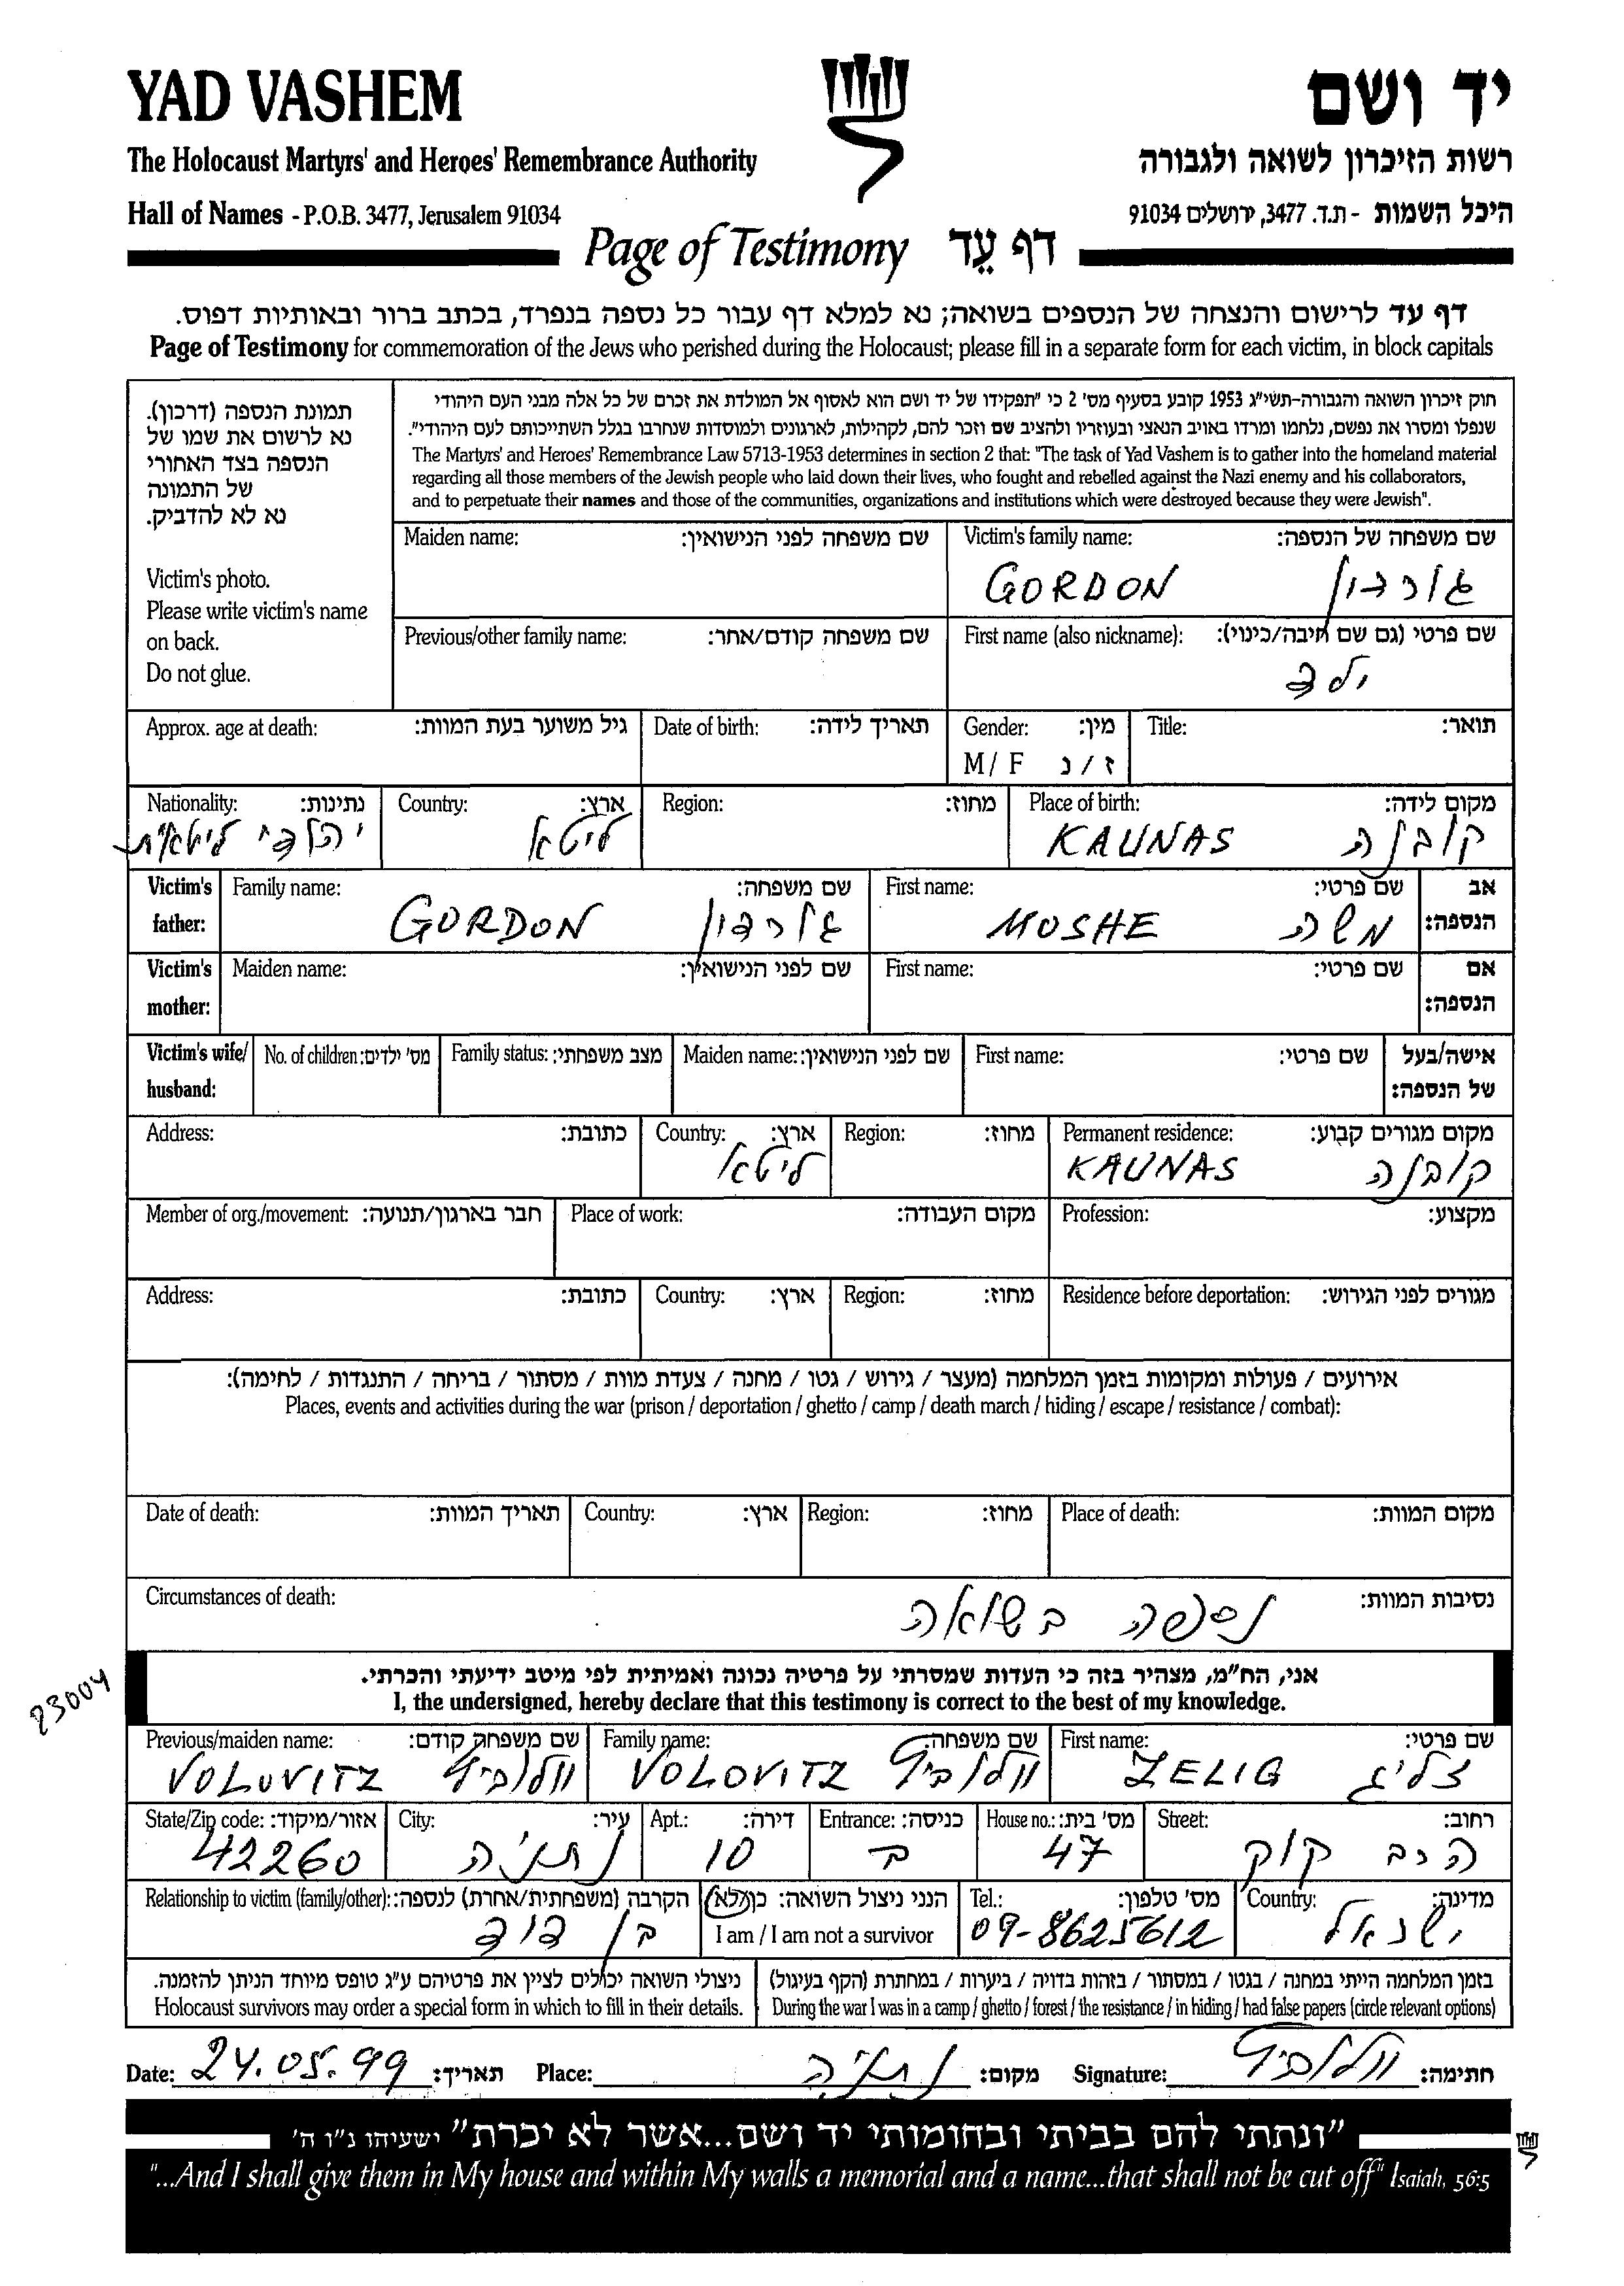 YAD VASHEM
יד ושם
The Holocaust Martyrs' and Heroes' Remembrance Authority
רשות הזיכרון לשואה ולגבורה
Hall of Names - P.O.B. 3477, Jerusalem 91034
היכל השמות - ת.ד. 3477, ירושלים 91034
Page of Testimony דף עֵד
דף עד לרישום והנצחה של הנספים בשואה; נא למלא דף עבור כל נספה בנפרד, בכתב ברור ובאותיות דפוס.
Page of Testimony for commemoration of the Jews who perished during the Holocaust; please fill in a separate form for each victim, in block capitals
תמונת הנספה (דרכון).
נא לרשום את שמו של
הנספה בצד האחורי
של התמונה
נא לא להדביק.
Victim's photo.
Please write victim's name
on back.
Do not glue.
חוק זיכרון השואה והגבורה-תשי"ג 1953 קובע בסעיף מס' 2 כי "תפקידו של יד ושם הוא לאסוף אל המולדת את זכרם של כל אלה מבני העם היהודי
שנפלו ומסרו את נפשם, נלחמו ומרדו באויב הנאצי ובעוזריו ולהציב שם וזכר להם, לקהילות, לארגונים ולמוסדות שנחרבו בגלל השתייכותם לעם היהודי".
The Martyrs' and Heroes' Remembrance Law 5713-1953 determines in section 2 that: "The task of Yad Vashem is to gather into the homeland material
regarding all those members of the Jewish people who laid down their lives, who fought and rebelled against the Nazi enemy and his collaborators,
and to perpetuate their names and those of the communities, organizations and institutions which were destroyed because they were Jewish".
Maiden name: שם משפחה לפני הנישואין:
Victim's family name: שם משפחה של הנספה:
GORDON גורדון
Previous/other family name: שם משפחה קודם/אחר:
First name (also nickname): שם פרטי (גם שם חיבה/כינוי):
ילד
Approx. age at death: גיל משוער בעת המוות:
Date of birth: תאריך לידה:
Gender: מין:
M / F ז / נ
Title: תואר:
Nationality: נתינות:
יהודי ליטאית
Country: ארץ:
ליטא
Region: מחוז:
Place of birth: מקום לידה:
KAUNAS קובנה
Victim's father: Family name: שם משפחה:
GORDON גורדון
First name: שם פרטי:
MOSHE משה
אב הנספה:
Victim's mother: Maiden name: שם לפני הנישואין:
First name: שם פרטי:
אם הנספה:
Victim's wife/ husband: No. of children: מס' ילדים:
Family status: מצב משפחתי:
Maiden name: שם לפני הנישואין:
First name: שם פרטי:
אישה/בעל של הנספה:
Address: כתובת:
Country: ארץ:
ליטא
Region: מחוז:
Permanent residence: מקום מגורים קבוע:
KAUNAS קובנה
Member of org./movement: חבר בארגון/תנועה:
Place of work: מקום העבודה:
Profession: מקצוע:
Address: כתובת:
Country: ארץ:
Region: מחוז:
Residence before deportation: מגורים לפני הגירוש:
אירועים / פעולות ומקומות בזמן המלחמה (מעצר / גירוש / גטו / מחנה / צעדת מוות / מסתור / בריחה / התנגדות / לחימה):
Places, events and activities during the war (prison / deportation / ghetto / camp / death march / hiding / escape / resistance / combat):
Date of death: תאריך המוות:
Country: ארץ:
Region: מחוז:
Place of death: מקום המוות:
Circumstances of death: נסיבות המוות:
נספה בשואה
23004
אני, הח"מ, מצהיר בזה כי העדות שמסרתי על פרטיה נכונה ואמיתית לפי מיטב ידיעתי והכרתי.
I, the undersigned, hereby declare that this testimony is correct to the best of my knowledge.
Previous/maiden name: שם משפחה קודם:
VOLOVITZ וולוביץ
Family name: שם משפחה:
VOLOVITZ וולוביץ
First name: שם פרטי:
ZELIG זליג
State/Zip code: אזור/מיקוד:
42260
City: עיר:
נתניה
Apt.: דירה:
10
Entrance: כניסה:
ב
House no.: מס' בית:
47
Street: רחוב:
הרב קוק
Relationship to victim (family/other): הקרבה (משפחתית/אחרת) לנספה:
בן דוד
הנני ניצול השואה: כן/לא
I am / I am not a survivor
Tel.: מס' טלפון:
09-8625612
Country: מדינה:
ישראל
ניצולי השואה יכולים לציין את פרטיהם ע"ג טופס מיוחד הניתן להזמנה.
Holocaust survivors may order a special form in which to fill in their details.
בזמן המלחמה הייתי במחנה / בגטו / במסתור / בזהות בדויה / ביערות / במחתרת (הקף בעיגול)
During the war I was in a camp / ghetto / forest / the resistance / in hiding / had false papers (circle relevant options)
Date: 24.05.99 תאריך: Place: נתניה מקום: Signature: וולוביץ חתימה:
"ונתתי להם בביתי ובחומותי יד ושם...אשר לא יכרת" ישעיהו נ"ו ה'
"...And I shall give them in My house and within My walls a memorial and a name...that shall not be cut off" Isaiah, 56:5